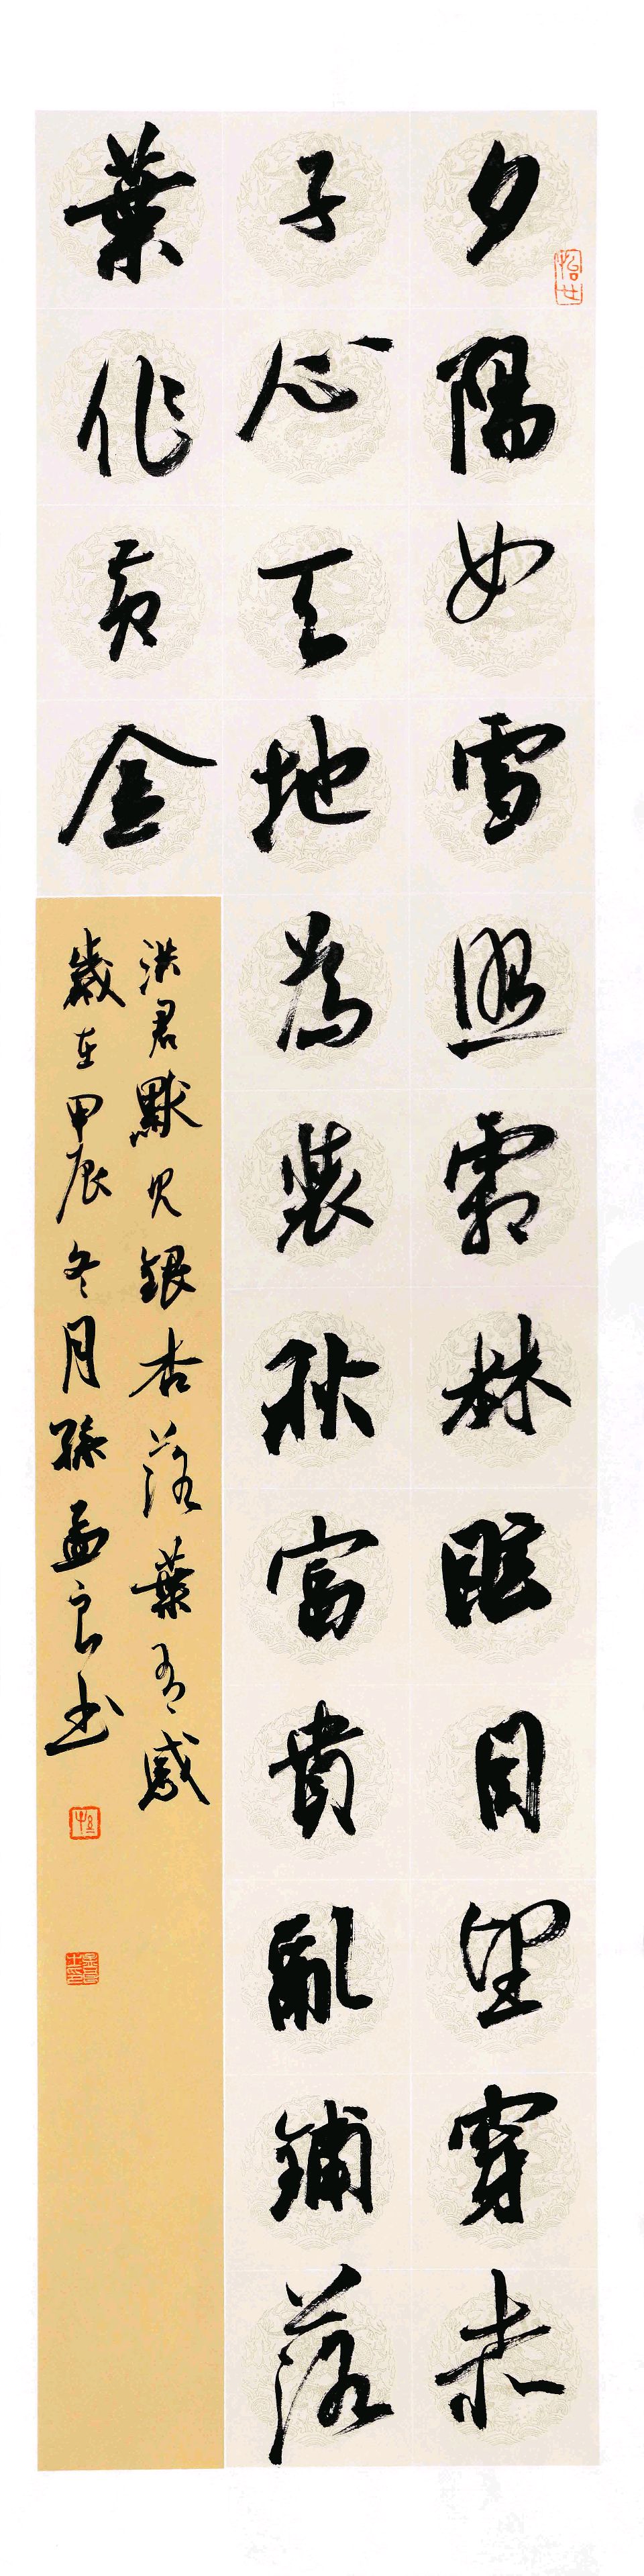 夕陽如雪照霜林眩目望穿赤
子心天地為裝秋富貴亂鋪落
葉作黃金
洪君默兄銀杏落葉有感
歲在甲辰冬月孫孟良书